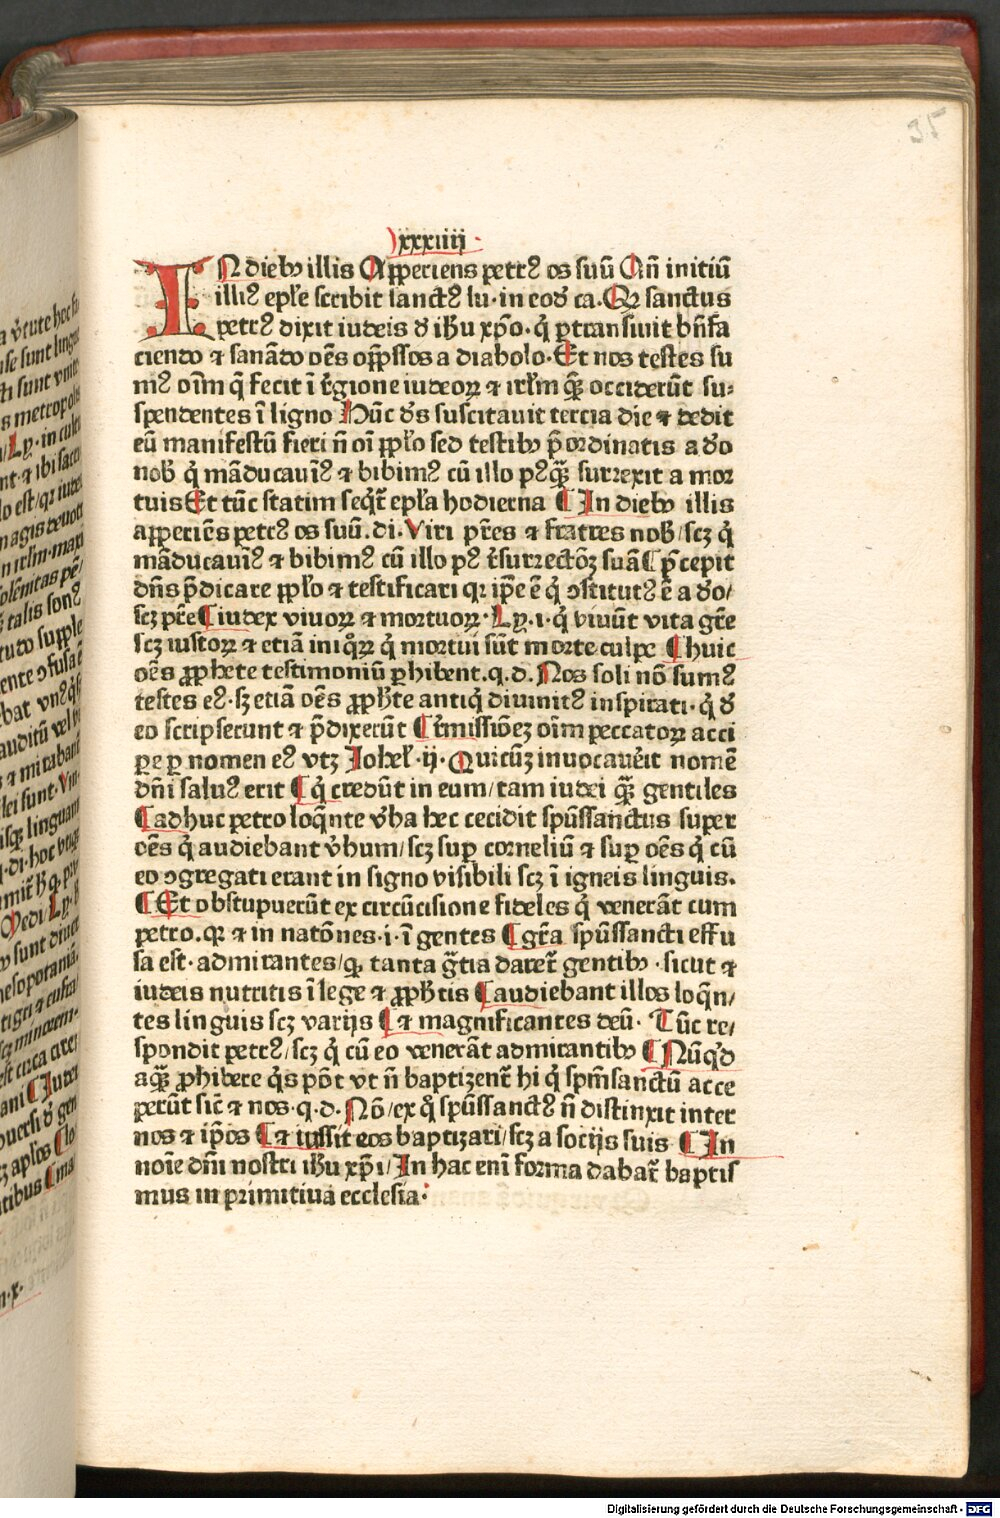 35
xxxiiij
IN diebꝰ illis Apperiens petrꝰ os suū An̄ initiū
illiꝰ ep̄le scribit sanctꝰ lu· in eod̄ ca· Qꝛ sanctus
petrꝰ dixit iudeis d̄ ih̄u xp̄o· q̇ ꝑtransiuit bn̄fa
ciendo ⁊ sanādo oēs opp̄ssos a diabolo· Et nos testes su
mꝰ oīm q̄ fecit ī r̄gione iudeoꝝ ⁊ irl̄m quē occiderūt su⸗
spendentes ī ligno Hūc d̄s suscitauit tercia die ⁊ dedit
eū manifestū fieri n̄ oī pp̄lo sed testibꝰ p̄ordinatis a do
nob̄ q̇ māducauīꝰ ⁊ bibimꝰ cū illo pꝰqꝫ surrexit a mor
tuis Et tūc statim seq̇t̄ ep̄la hodierna ¶ In diebꝰ illis
apperiēs petrꝰ os suū· di· Viri p̄res ⁊ fratres nob̄/scꝫ q̇
māducauīꝰ ⁊ bibimꝰ cū illo pꝰ r̄surrectōꝫ suā ¶ p̄cepit
dn̄s p̄dicare pp̄lo ⁊ testificari qꝛ ip̄e ē q̇ ꝯstitutꝰ ē a do/
scꝫ pr̄e ¶ iudex viuoꝝ ⁊ mortuoꝝ· Ly· i· q̇ viuūt vita gr̄e
scꝫ iustoꝝ ⁊ etiā iniq̇ꝝ q̇ mortui sūt morte culpe ¶ huic
oēs ꝓphete testimoniū ꝑhibent· q· d· Nos soli nō sumꝰ
testes eꝰ· sꝫ etiā oēs ꝓph̄te antiq̇ diuinitꝰ inspirati· q̇ d̄
eo scripserunt ⁊ p̄dixerūt ¶ r̄missiōeꝫ oīm peccatoꝝ acci
pe ꝑ nomen eꝰ vtꝫ Johel̄· ij· Quicūꝫ inuocauēit nomē
dn̄i saluꝰ erit ¶ q̇ credūt in eum/tam iudei qꝫ gentiles
¶ adhuc petro loq̄nte v̄ba hec cecidit spūssanctus super
oēs q̇ audiebant v̄bum/scꝫ suꝑ corneliū ⁊ suꝑ oēs q̇ cū
eo ꝯgregati erant in signo visibili scꝫ ī igneis linguis·
¶ Et obstupuerūt ex circūcisione fideles q̇ venerāt cum
petro· qꝛ ⁊ in natōnes· i· ī gentes ¶ gr̄a spūssancti effu
sa est· admirantes/qꝫ tanta gr̄tia daret̄ gentibꝰ· sicut ⁊
iudeis nutritis ī lege ⁊ ꝓph̄tis ¶ audiebant illos loq̄n/
tes linguis scꝫ varijs ¶ ⁊ magnificantes deū· Tūc re/
spondit petrꝰ/scꝫ q̇ cū eo venerāt admirantibꝰ ¶ Nūq̇d
aquā ꝓhibere q̇s pōt vt n̄ baptizent̄ hi q̇ spm̄sanctū acce
perūt sic̄ ⁊ nos· q· d· Nō/ex q̇ spūssanctꝰ n̄ distinxit inter
nos ⁊ ip̄os ¶ ⁊ iussit eos baptizari/scꝫ a socijs suis ¶ In
noīe dn̄i nostri ih̄u xp̄i/In hac enī forma dabat̄ baptis
mus in primitiua ecclesia·
Digitalisierung gefördert durch die Deutsche Forschungsgemeinschaft - DFG